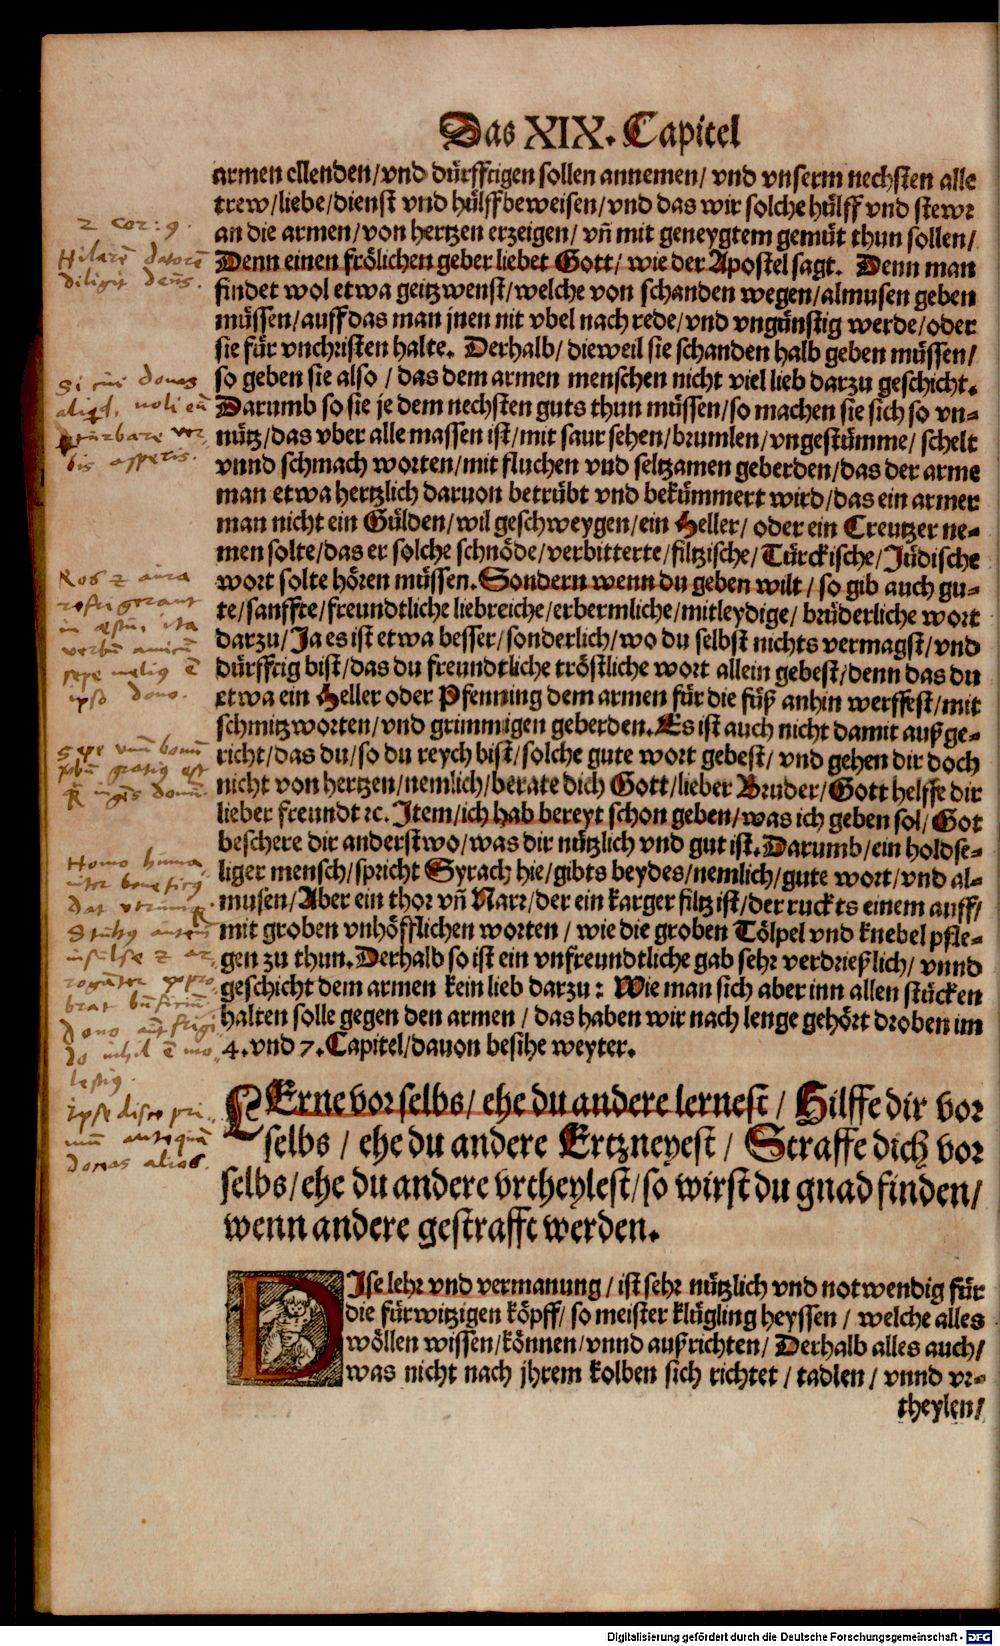 Das XIX. Capitel
armen ellenden/vnd dürfftigen sollen annemen/ vnd vnserm nechsten alle
trew/liebe/dienst vnd hülff beweisen/vnd das wir solche hülff vnd stewr
an die armen/von hertzen erzeigen/ vñ mit geneygtem gemüt thun sollen/
Denn einen frölichen geber liebet Gott/ wie der Apostel sagt. Denn man
findet wol etwa geitzwenst/welche von schanden wegen/almusen geben
müssen/auff das man jnen nit vbel nach rede/vnd vngünstig werde/oder
sie für vnchristen halte. Derhalb/dieweil sie schanden halb geben müssen/
so geben sie also / das dem armen menschen nicht viel lieb darzu geschicht.
Darumb so sie je dem nechsten guts thun müssen/so machen sie sich so vn-
nütz/das vber alle massen ist/mit saur sehen/brumlen/vngestümme/ schelt
vnnd schmach worten/mit fluchen vnd seltzamen geberden/das der arme
man etwa hertzlich daruon betrübt vnd bekümmert wird/das ein armer
man nicht ein Gülden/wil geschweygen/ein Heller/ oder ein Creutzer ne-
men solte/das er solche schnöde/verbitterte/filtzische/Türckische/Jüdische
wort solte hören müssen. Sondern wenn du geben wilt/ so gib auch gu-
te/sanffte/freundtliche liebreiche/erbermliche/mitleydige/ brüderliche wort
darzu/Ja es ist etwa besser/sonderlich/wo du selbst nichts vermagst/vnd
dürfftig bist/das du freundtliche tröstliche wort allein gebest/denn das du
etwa ein Heller oder Pfenning dem armen für die füß anhin werffest/mit
schmitzworten/vnd grimmigen geberden. Es ist auch nicht damit außge-
richt/das du/so du reych bist/solche gute wort gebest/ vnd gehen dir doch
nicht von hertzen/nemlich/berate dich Gott/lieber Bruder/Gott helffe dir
lieber freundt ꝛc. Item/ich hab bereyt schon geben/was ich geben sol/Got
beschere dir anderstwo/was dir nützlich vnd gut ist. Darumb/ein holdse-
liger mensch/spricht Syrach hie/gibts beydes/nemlich/gute wort/vnd al-
musen/Aber ein thor vñ Narr/der ein karger filtz ist/der ruckts einem auff/
mit groben vnhöfflichen worten / wie die groben Tölpel vnd knebel pfle-
gen zu thun. Derhalb so ist ein vnfreundtliche gab sehr verdrießlich/ vnnd
geschicht dem armen kein lieb darzu: Wie man sich aber inn allen stücken
halten solle gegen den armen / das haben wir nach lenge gehört droben im
4. vnd 7. Capitel/dauon besihe weyter.
LErne vor selbs/ ehe du andere lernest / Hilffe dir vor
selbs / ehe du andere Ertzneyest / Straffe dich vor
selbs/ehe du andere vrtheylest/so wirst du gnad finden/
wenn andere gestrafft werden.
DIse lehr vnd vermanung / ist sehr nützlich vnd notwendig für
die fürwitzigen köpff/ so meister klügling heyssen / welche alles
wöllen wissen/können/vnnd außrichten/ Derhalb alles auch/
was nicht nach jhrem kolben sich richtet / tadlen / vnnd vr-
theylen/
2 cor: 9.
Hilarē datorē
diligit deus.
Si cui donas
aliqd, noli eū
turbare ver
bis asperis.
Ros 2 aura
refrigerant
in æstu, ita
verbū amicū
sepe melig ē
ipso dono.
Homo huma
dat
Stultg autem
Ipse disce pri
mū antequā
doceas alios.
Digitalisierung gefördert durch die Deutsche Forschungsgemeinschaft - DFG